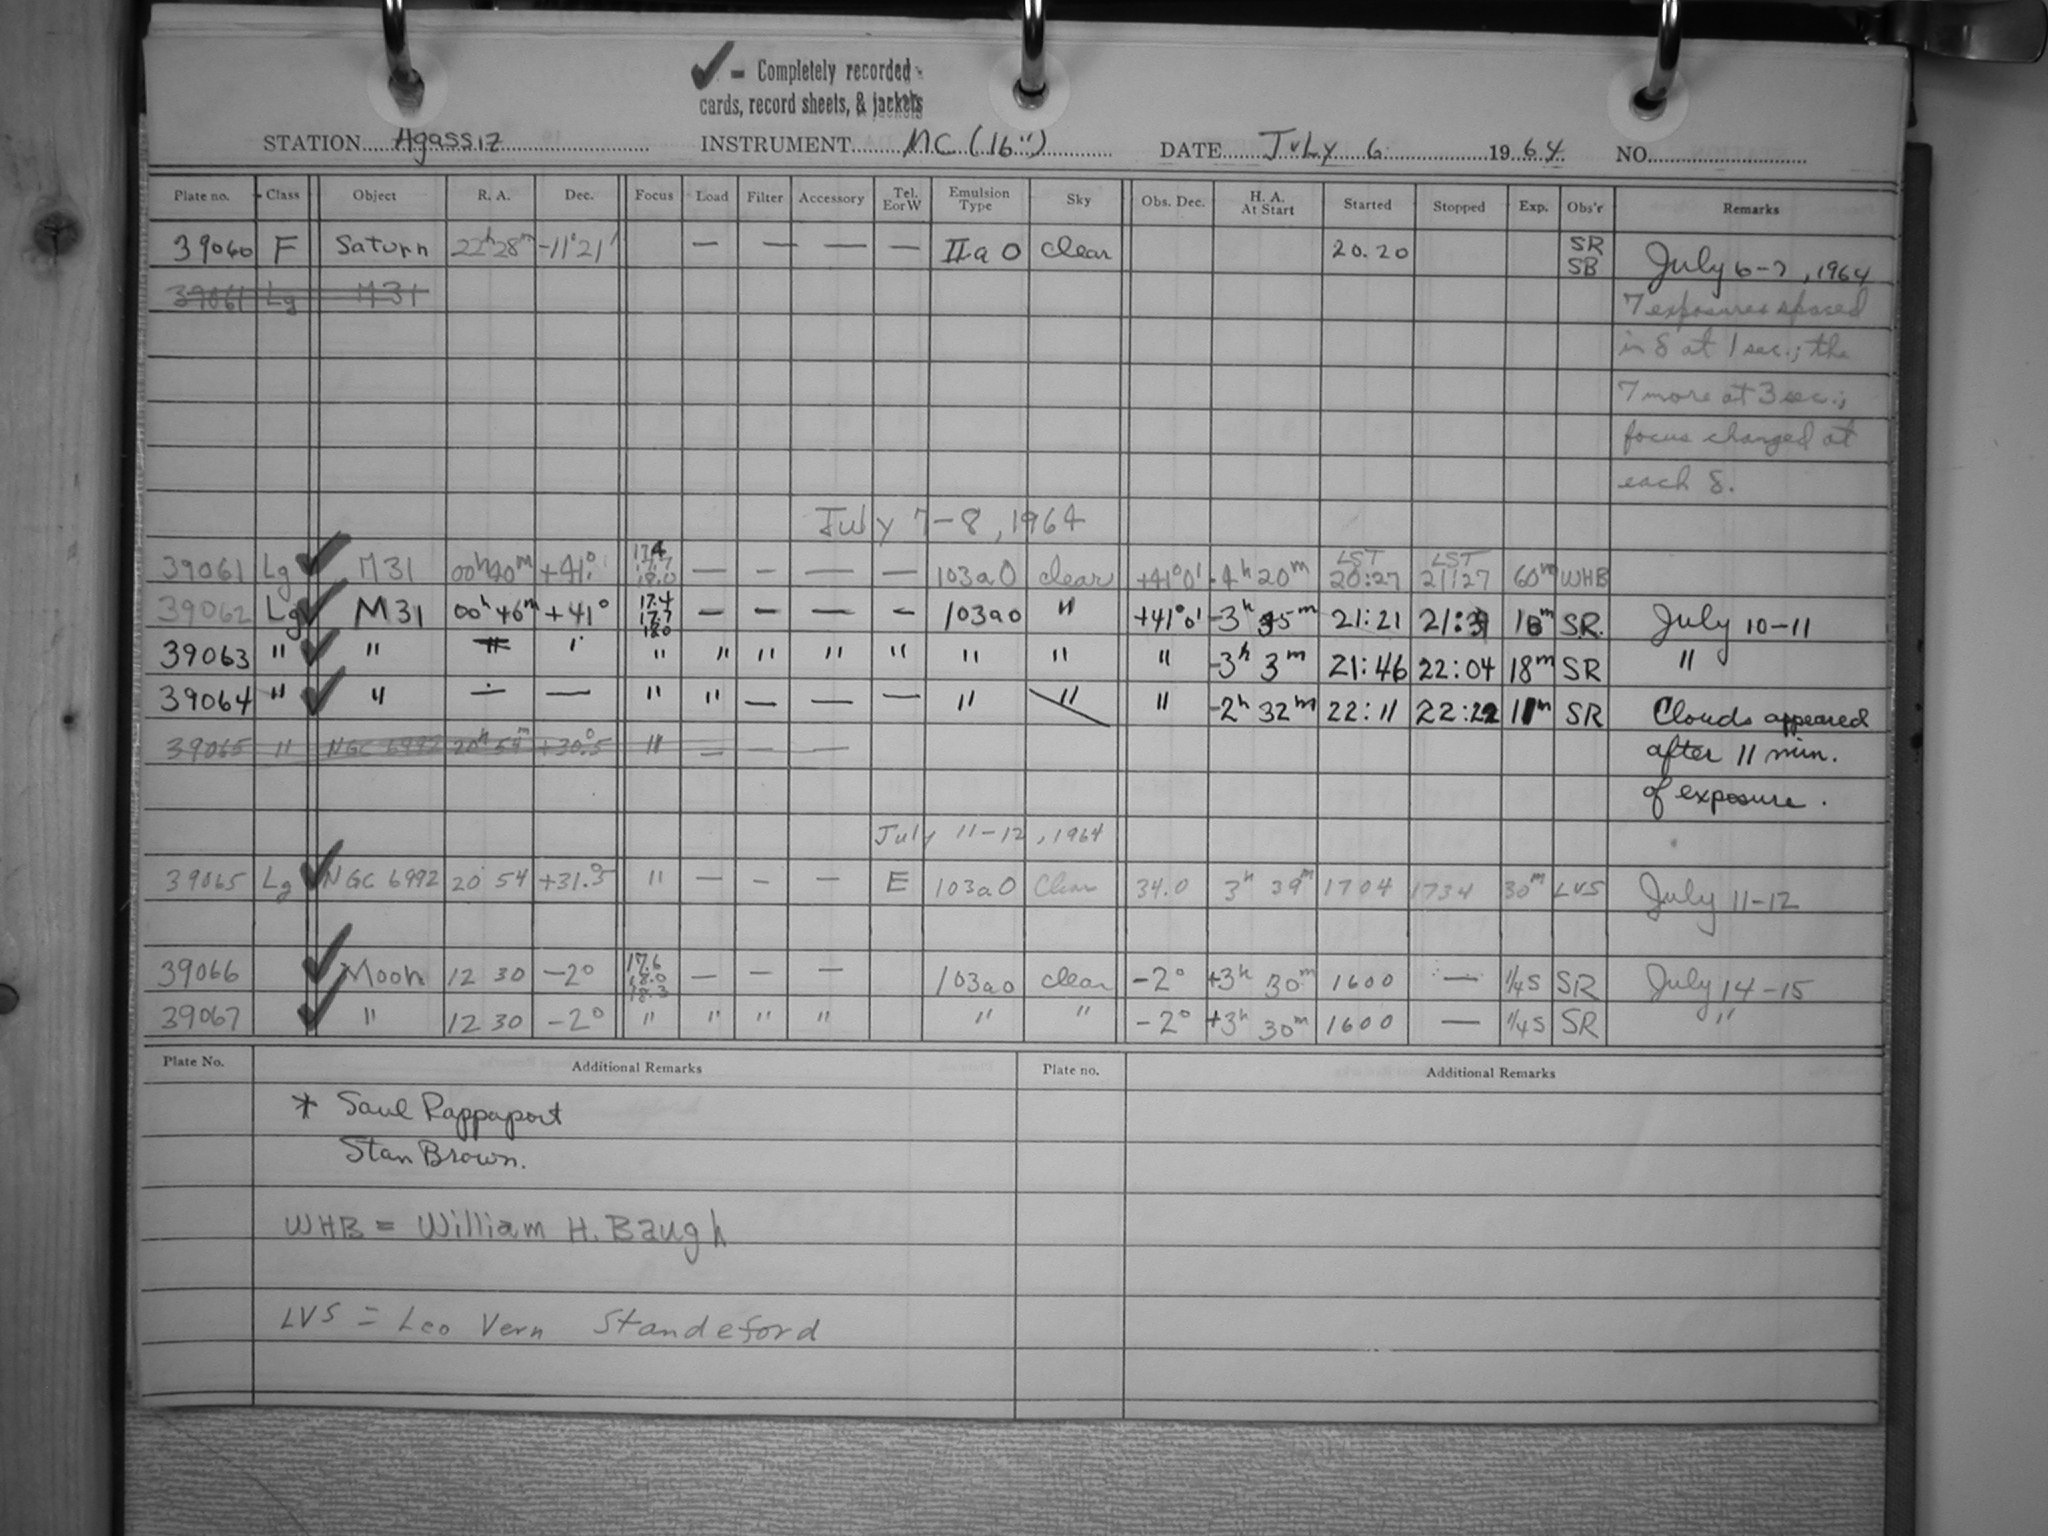 ✓ - Completely recorded -
cards, record sheets, & jackets
STATION Agassiz INSTRUMENT MC (16") DATE July 6 1964 NO.
Plate no. Class Object R. A. Dec. Focus Load Filter Accessory Tel. E or W Emulsion Type Sky Obs. Dec. H. A. At Start Started Stopped Exp. Obs'r Remarks
39060 F Saturn 22h 28m -11°21' — — — — IIa O clear 20.20 SR SB July 6-7, 1964
39061 Lg M31 7 exposures spaced
in δ at 1 sec.; the
7 more at 3 sec.;
focus changed at
each δ.
July 7-8, 1964
39061 Lg ✓ M31 00h40m +41° 17.4 17.7 18.0 — — — — 103a O clear +41°0' -4h 20m LST 20:27 LST 21:27 60m WHB
39062 Lg ✓ M31 00h 40m +41° 17.4 17.7 18.0 — — — — 103a O " +41°0' -3h 35m 21:21 21:39 18m SR July 10-11
39063 " ✓ " " " " " " " " " " " -3h 3m 21:46 22:04 18m SR "
39064 " ✓ " — — " " — — — " " " -2h 32m 22:11 22:22 11m SR Clouds appeared
39065 " NGC 6992 20h 54m +30.°5 " — — — after 11 min.
of exposure.
July 11-12, 1964
39065 Lg ✓ NGC 6992 20 54 +31.°5 " — — — E 103a O Clear 34.0 3h 39m 1704 1734 30m LVS July 11-12
39066 ✓ Moon 12 30 -2° 17.6 18.0 18.3 — — — 103a O clear -2° +3h 30m 1600 — 1/4s SR July 14-15
39067 ✓ " 12 30 -2° " " " " " " -2° +3h 30m 1600 — 1/4s SR "
Plate No. Additional Remarks Plate no. Additional Remarks
* Saul Rappaport
Stan Brown.
WHB = William H. Baugh
LVS = Leo Vern Standeford